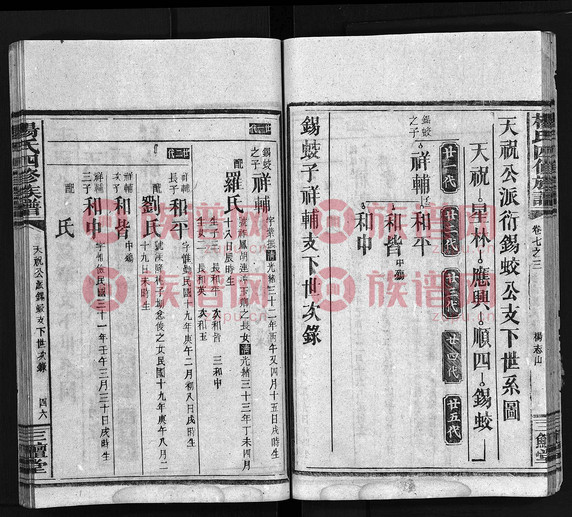 楊氏四修族譜
卷七之三
楊志山
三鱣堂
天祝公派衍錫蛟公支下世系圖
天祝 星林 應興 順四 錫蛟
廿一代 廿二代 廿三代 廿四代 廿五代
錫蛟之子 祥輔 和平
和皆 中殤
和中
錫蛟子祥輔支下世次錄
廿一代
錫蛟之子 祥輔 字業振清光緒三十二年丙午又四月十五日戌時生
配 羅氏
光緒三十三年丁未四月
十八日辰時生
子三 長和平 次和皆 三和中
長和英 次和玉
廿二代
祥輔長子 和平 字惟勳民國十九年庚午二月初八日戌時生
配 劉氏
之女民國十九年庚午八月二
十九日未時生
祥輔次子 和皆 中殤
祥輔三子 和中 字惟 民國三十一年壬午三月三十日戌時生
配 氏
楊氏四修族譜
天祝公派錫蛟支下世次錄
四六
三鱣堂
族谱网
zupu.cn